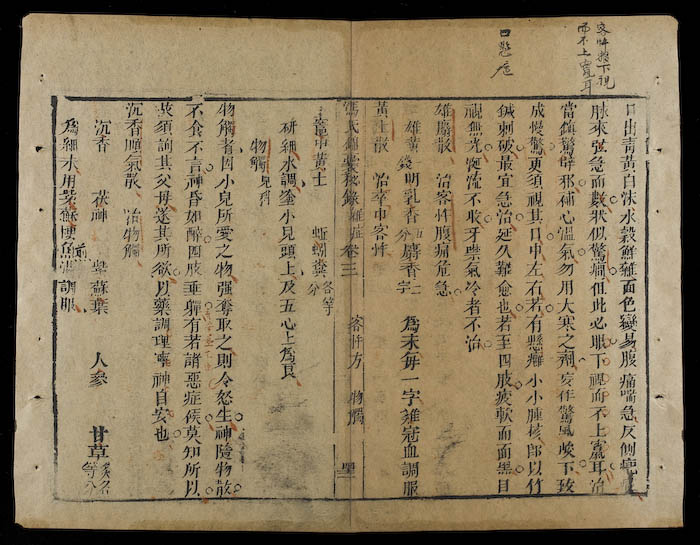 客忤撥下視
而不上竄耳
口懸𤻤
口出靑黃白沫水穀鮮雜面色變易腹痛喘急反側瘛
脉來弦急而數狀似驚癎但此必眼下視而不上竄耳治
當鎭驚辟邪補心溫氣勿用大寒之劑妄作驚風峻下致
成慢驚更須視其口中左右若有懸癰小小腫核即以竹
鍼刺破最宜急治延久難愈也若至四肢疲軟而面黑目
視無光慌慌不收牙噤氣冷者不治
雄麝散 治客忤腹痛危急
雄黃錢 明乳香分 麝香一字 爲末每一字雞冠血調服
黃土散 治卒中客忤
馮氏錦囊秘錄雜症 卷三 客忤方 物觸
竈中黃土 蚯蚓糞各等分
研細水調塗小兒頭上及五心上爲良
物觸兒科
物觸者因小兒所愛之物强奪取之則令怒生神隨物散
不食不言神昏如醉四肢垂軃有若諸惡症候莫知所以
汝須詢其父母遂其所欲以藥調理寧神自安也
沉香順氣散 治物觸
沉香 茯神 紫蘇葉 人參 甘草炙各等分
爲細末用紫蘇煎湯調服